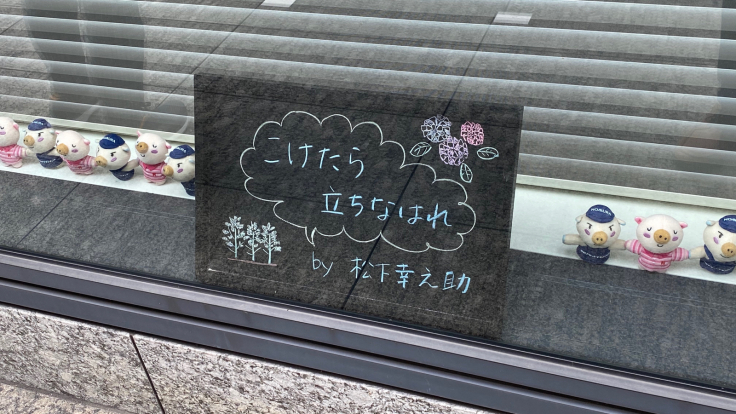 こけたら
立ちなはれ
by 松下幸之助